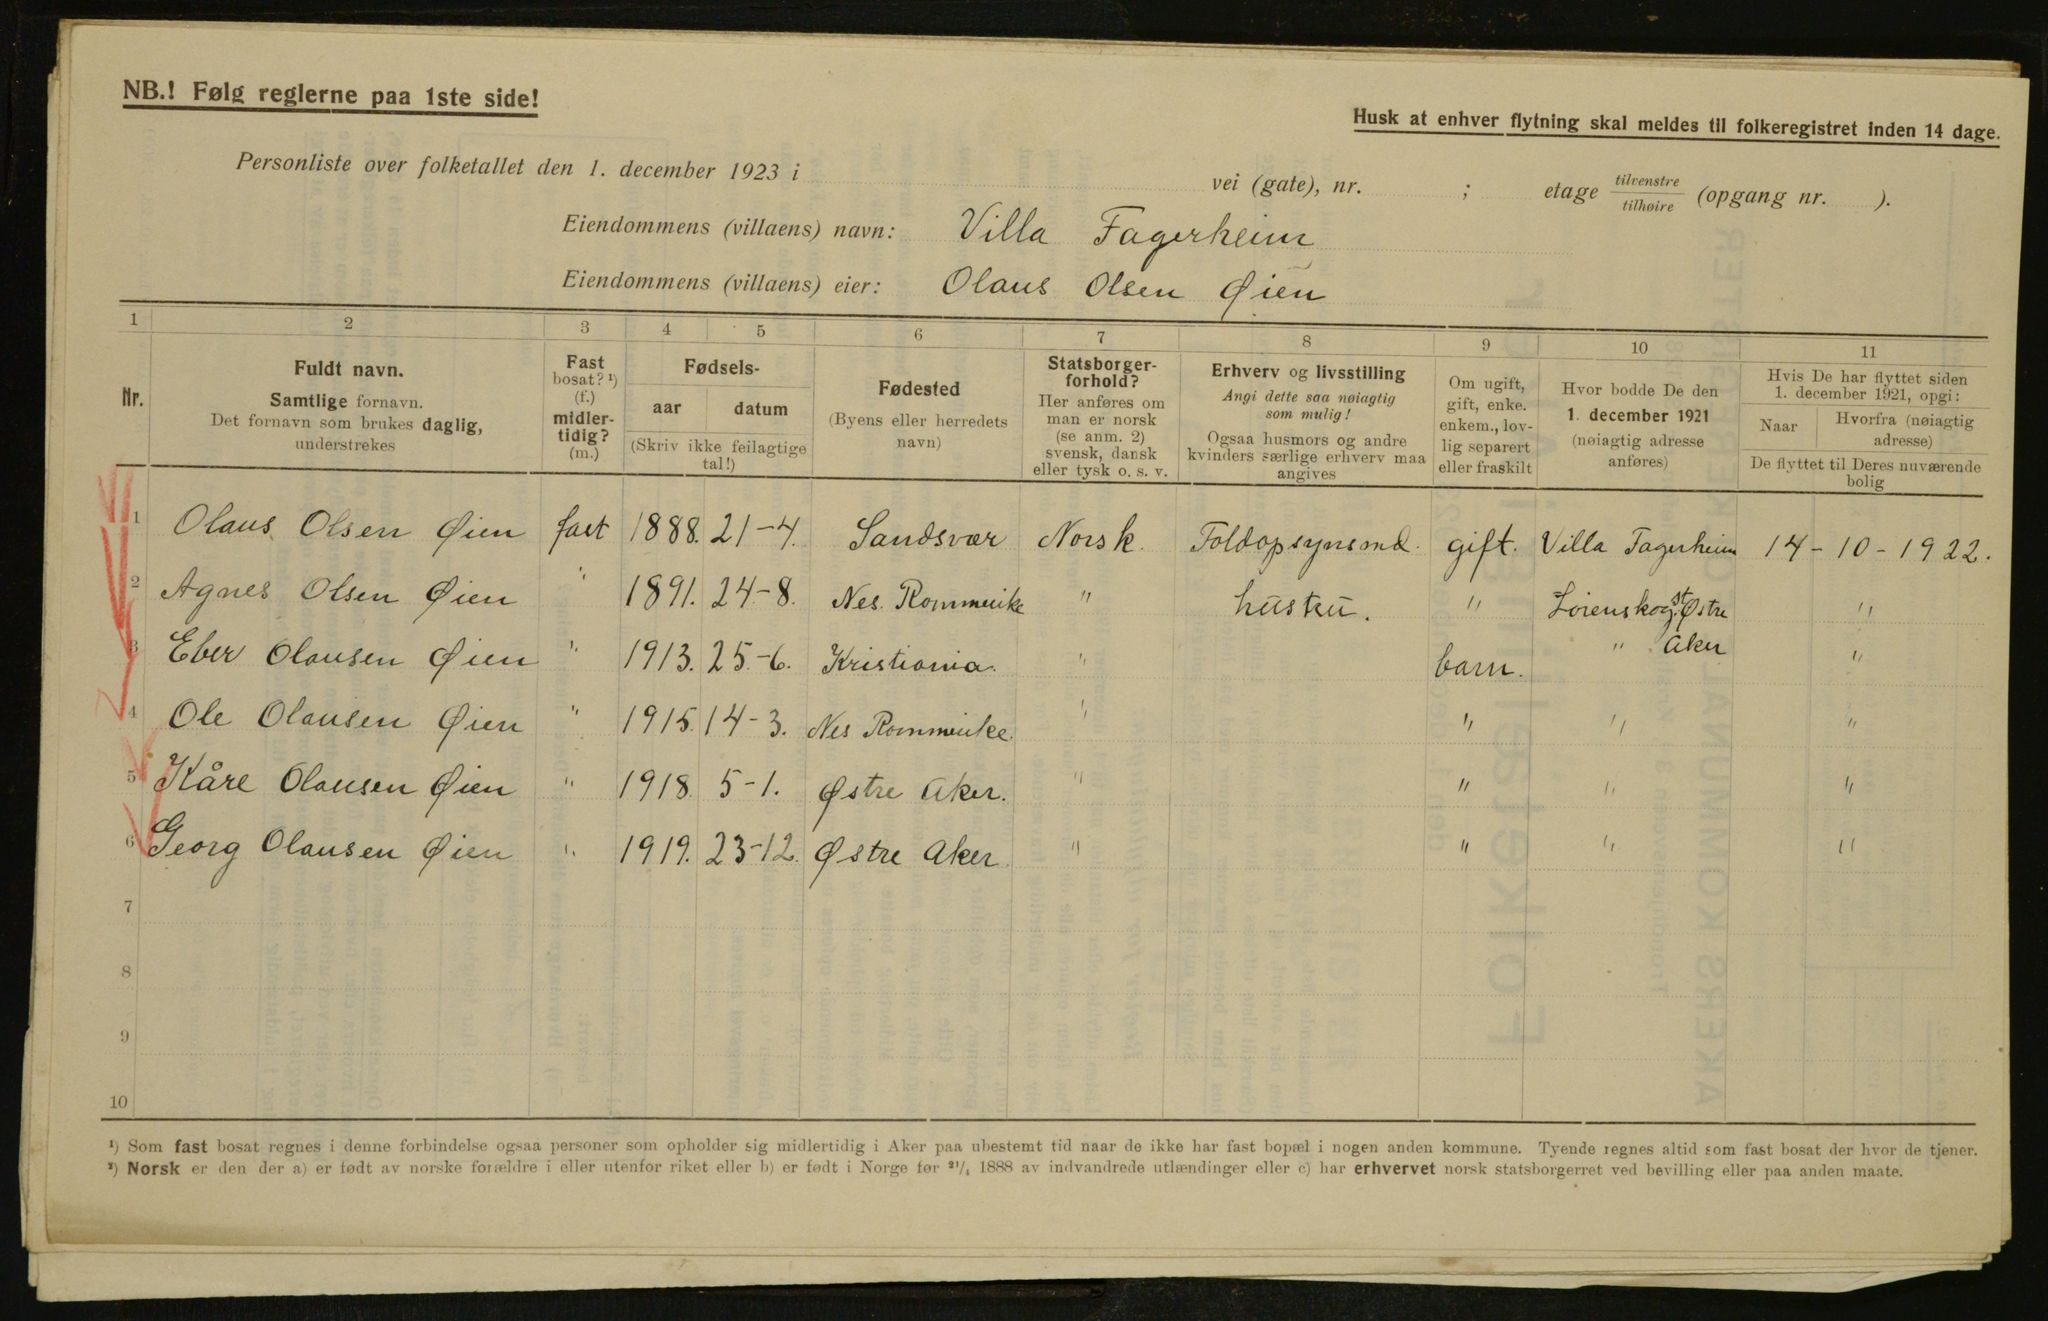 NB.! Følg reglerne paa 1ste side!
Husk at enhver flytning skal meldes til folkeregistret inden 14 dage.
Personliste over folketallet den 1. december 1923 i vei (gate), nr. ; etage tilvenstre/tilhøire (opgang nr. ).
Eiendommens (villaens) navn: Villa Fagerheim
Eiendommens (villaens) eier: Olaus Olsen Øien
1 2 3 4 5 6 7 8 9 10 11
Nr.
Fuldt navn.
Samtlige fornavn.
Det fornavn som brukes daglig,
understrekes
Fast
bosat? ¹)
(f.)
midler-
tidig?
(m.)
Fødsels-
aar datum
(Skriv ikke feilagtige
tal!)
Fødested
(Byens eller herredets
navn)
Statsborger-
forhold?
Her anføres om
man er norsk
(se anm. 2)
svensk, dansk
eller tysk o. s. v.
Erhverv og livsstilling
Angi dette saa nøiagtig
som mulig!
Ogsaa husmors og andre
kvinders særlige erhverv maa
angives
Om ugift,
gift, enke.
enkem., lov-
lig separert
eller fraskilt
Hvor bodde De den
1. december 1921
(nøiagtig adresse
anføres)
Hvis De har flyttet siden
1. december 1921, opgi:
Naar Hvorfra (nøiagtig
adresse)
De flyttet til Deres nuværende
bolig
1 Olaus Olsen Øien fast 1888. 21-4. Sandsvær Norsk. Toldopsynsmd. gift. Villa Fagerheim 14-10-1922.
2 Agnes Olsen Øien " 1891. 24-8. Nes. Rommerike " hustru. " Lørenskog st. Østre "
3 Eber Olausen Øien " 1913. 25-6. Kristiania. " barn. " Aker "
4 Ole Olausen Øien " 1915. 14-3. Nes Rommerike. " " " "
5 Kåre Olausen Øien " 1918 5-1. Østre Aker. " " " "
6 Georg Olausen Øien " 1919. 23-12. Østre Aker " " " "
7
8
9
10
¹) Som fast bosat regnes i denne forbindelse ogsaa personer som opholder sig midlertidig i Aker paa ubestemt tid naar de ikke har fast bopæl i nogen anden kommune. Tyende regnes altid som fast bosat der hvor de tjener.
²) Norsk er den der a) er født av norske forældre i eller utenfor riket eller b) er født i Norge før ²¹/₄ 1888 av indvandrede utlændinger eller c) har erhvervet norsk statsborgerret ved bevilling eller paa anden maate.